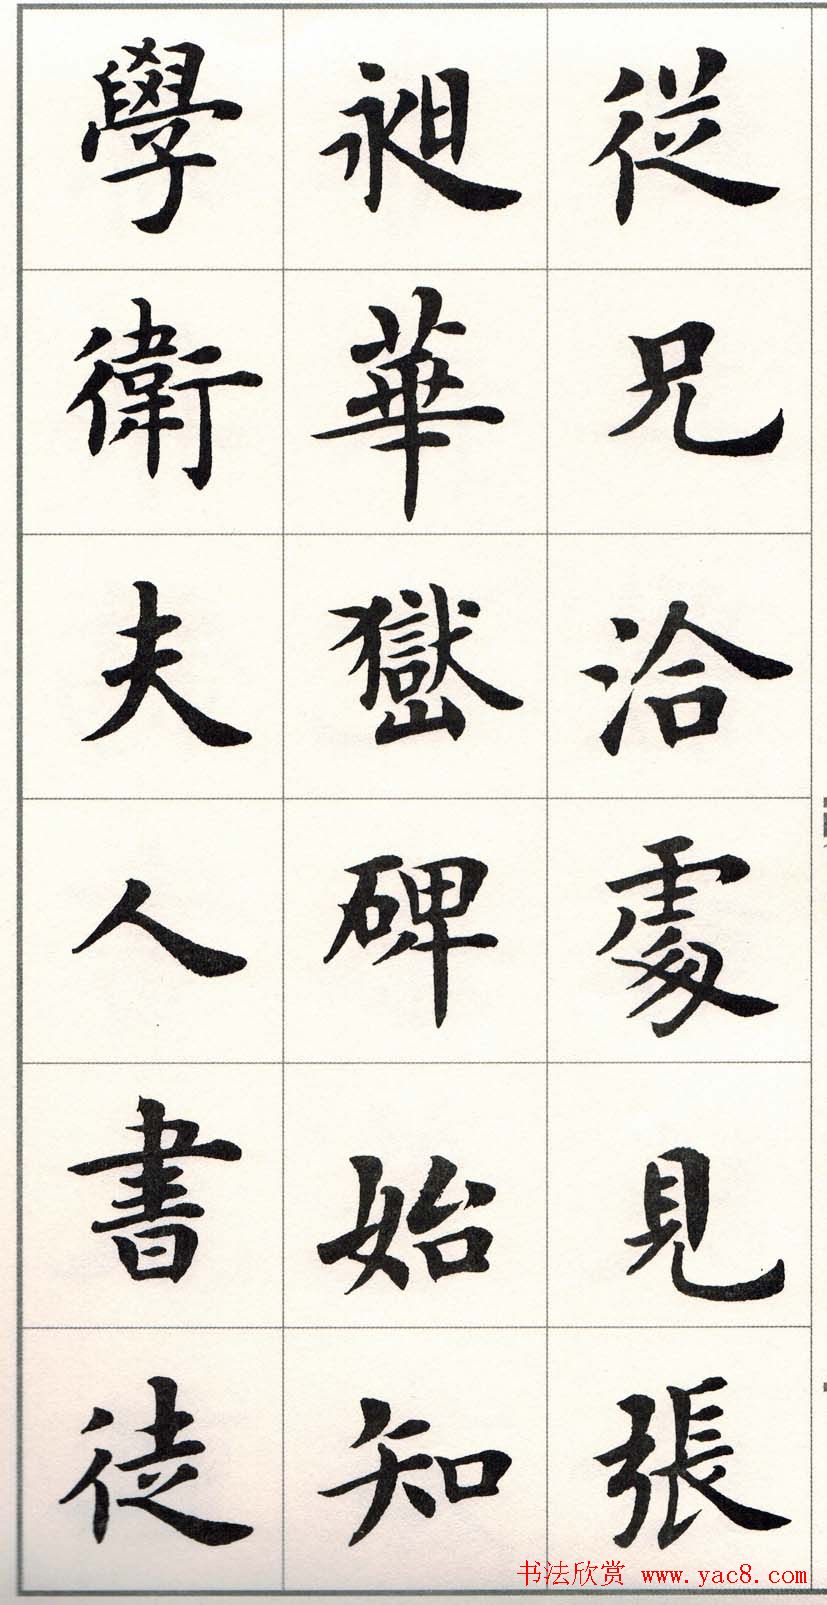 從兄洽處見張
昶華嶽碑始知
學衛夫人書徒
书法欣赏 www.yac8.com